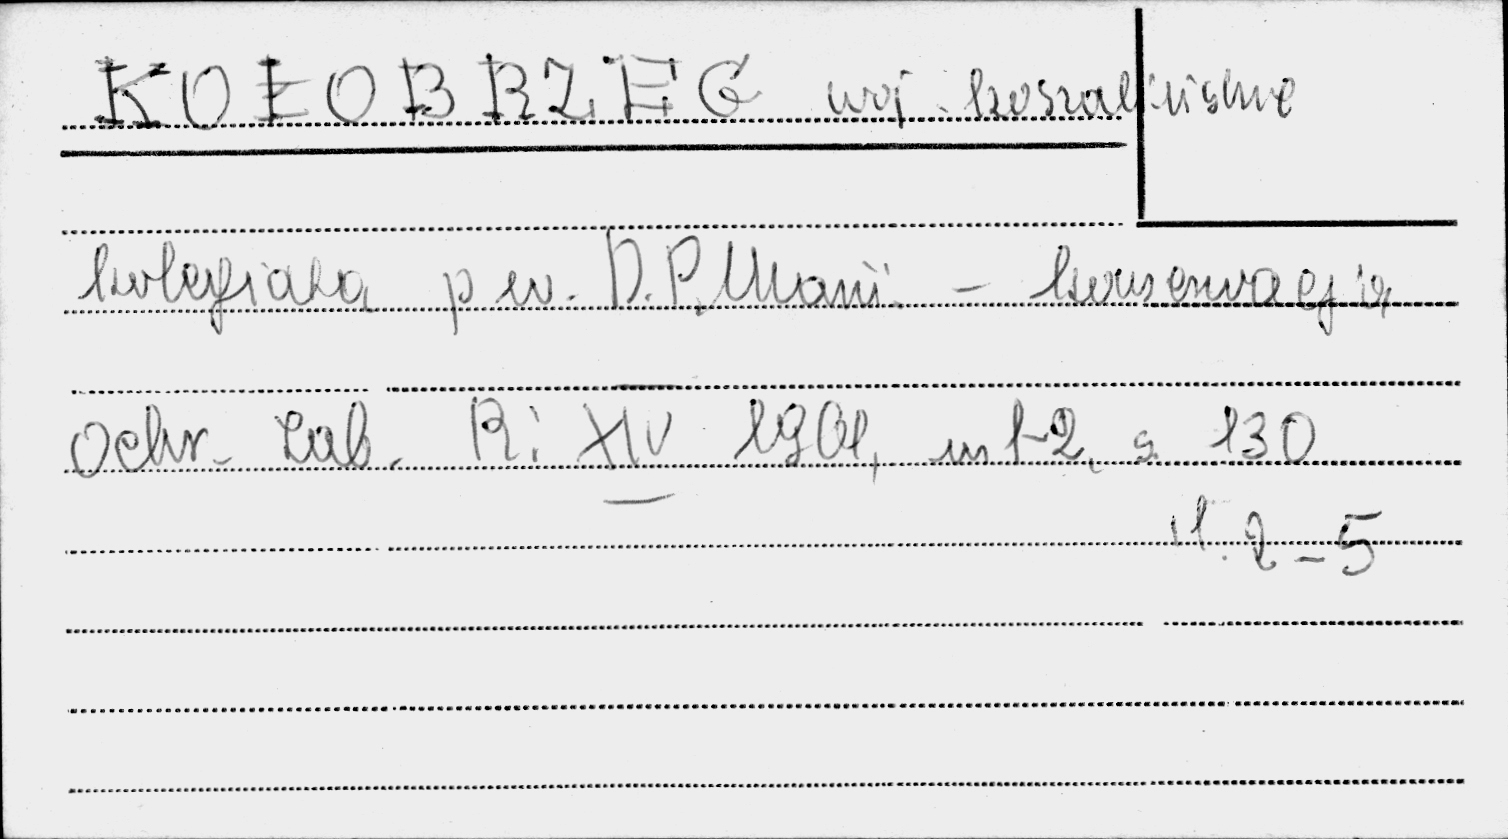 KOŁOBRZEG woj. koszalińskie
kolegiata p w. N.P. Marii. – konserwacja
Ochr. Zab. R: XIV 1961, nr 1-2, s. 130
il. 2-5